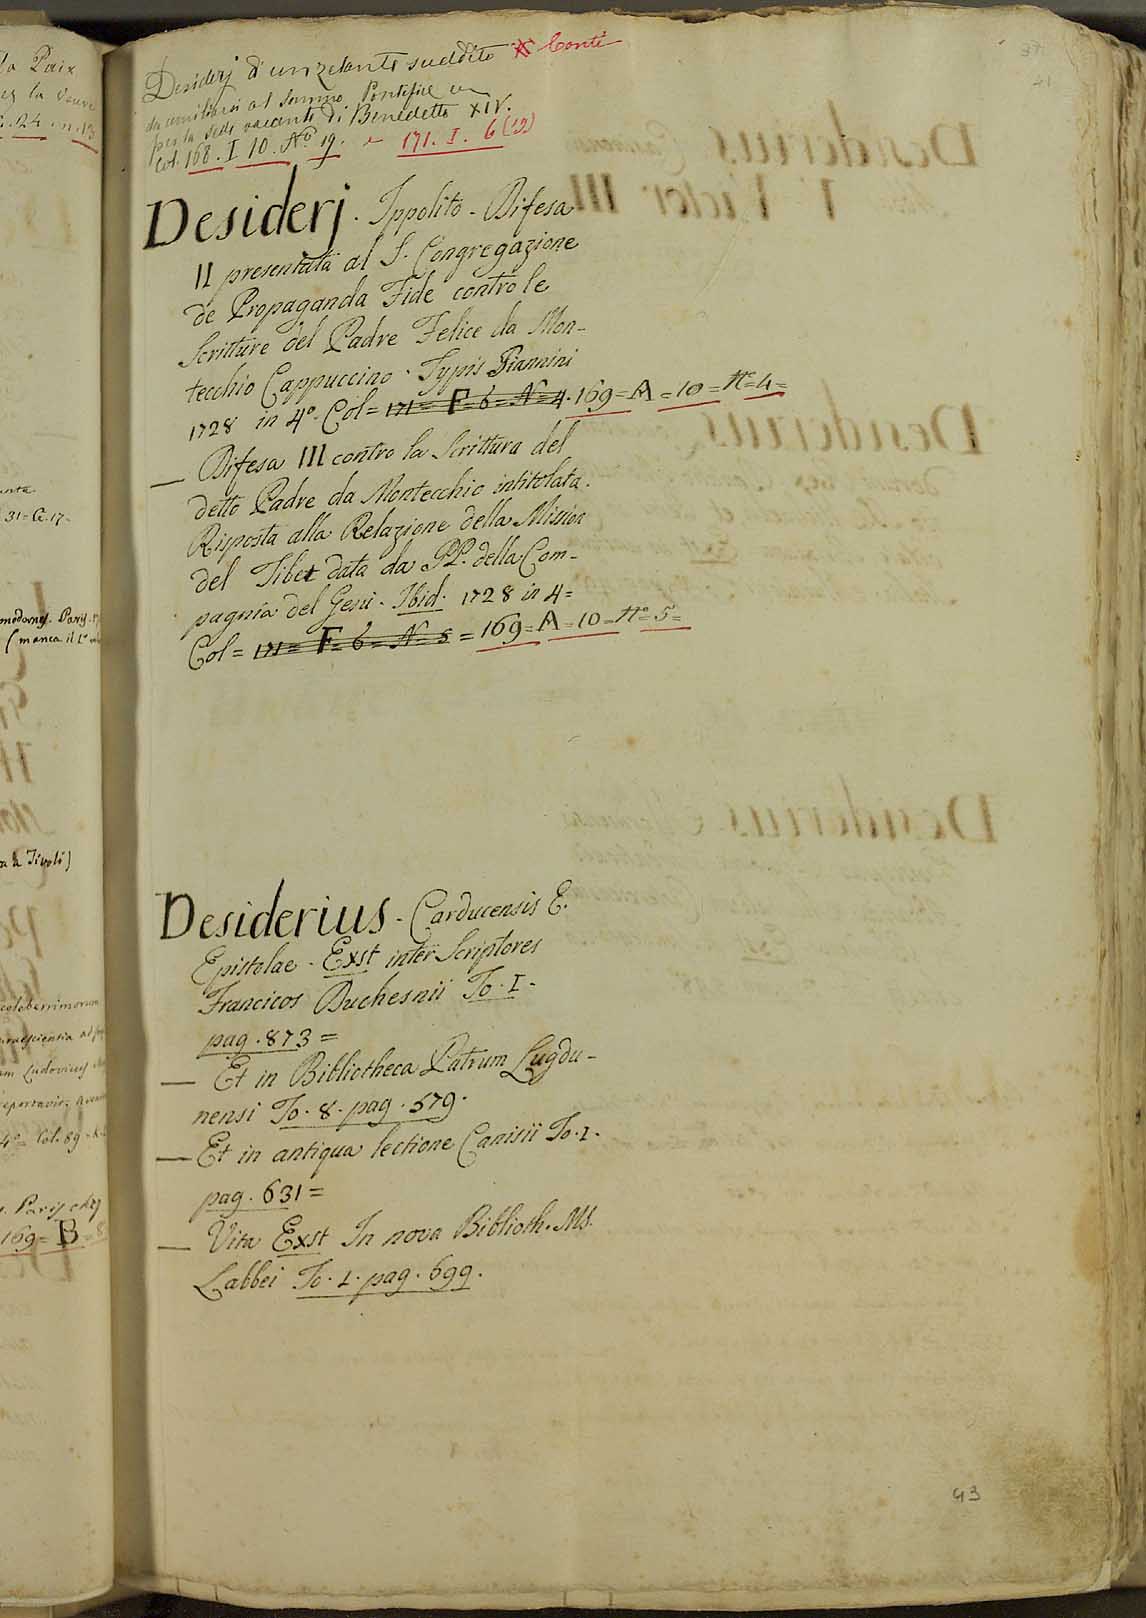 lo Paix
es la Veuve
24. n. 13
31 = C. 17.
modorny. Paris.
(manca il 1°
a Tivoli)
celeberrimorum
praescientia
Ludovicus
4° = Col. 89
Paris
169 = B = 8
37
41
Desiderj d'un zelante suddito Conti
da umiliarsi al sommo Pontefice
per la sede vacante di Benedetto XIV.
Col. 168. I 10. N° 19. e 171. I. 6 (19)
Desiderj. Ippolito - Difesa
II presentata al S. Congregazione
de Propaganda Fide contro le
Scritture del Padre Felice da Mon-
tecchio Cappuccino. Typis Giannini
1728 in 4°. Col = 171 = F = 6 = N = 4. 169 = A = 10 = N° = 4 =
— Difesa III contro la Scrittura del
detto Padre da Montecchio intitolata.
Risposta alla Relazione della Mission
del Tibet data da PP. della Com-
pagnia del Gesù. Ibid. 1728 in 4 =
Col = 171 = F = 6 = N = 5 = 169 = A = 10 = N° = 5 =
Desiderius - Carducensis E.
Epistolae - Exst inter Scriptores
Francicos Duchesnii To. I.
pag. 873 =
— Et in Bibliotheca Patrum Lugdu-
nensi To. 8. pag. 579.
— Et in antiqua lectione Canisii To. 1.
pag. 631 =
— Vita Exst In nova Biblioth. Ms.
Labbei To. 1. pag. 699.
43